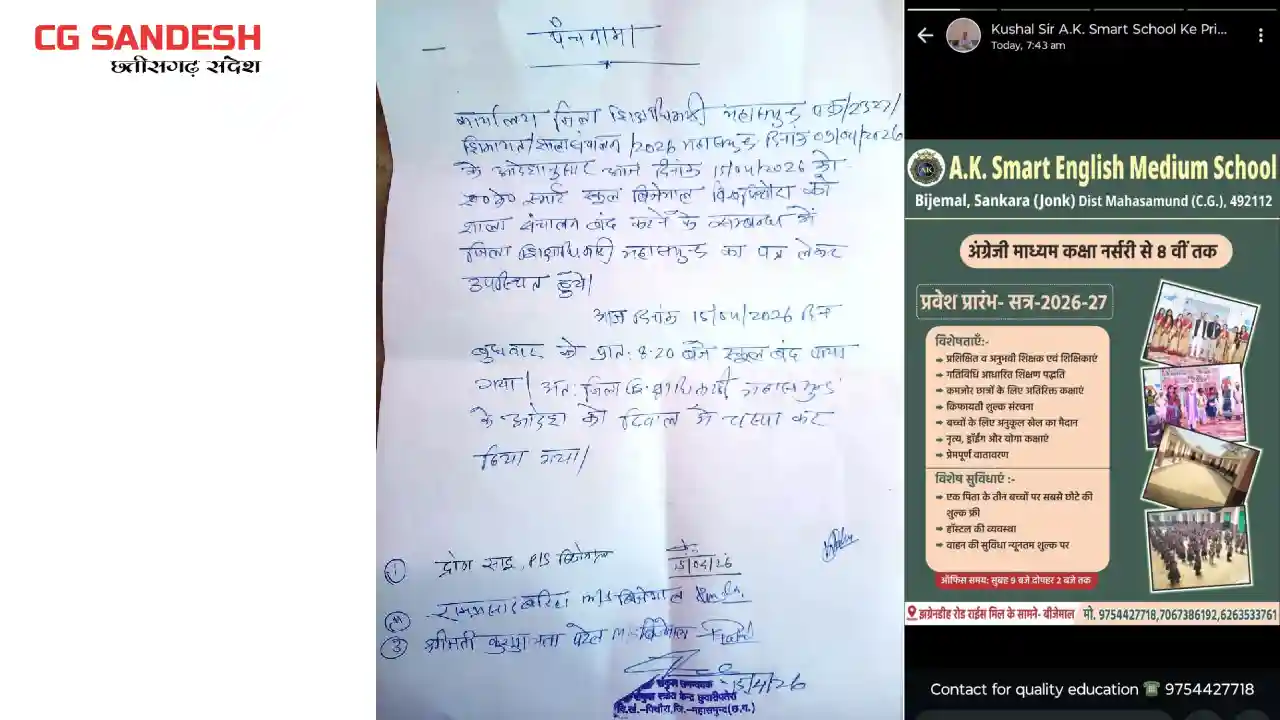 CG SANDESH
छत्तीसगढ़ संदेश
पंचनामा
कार्यालय जिला शिक्षा अधिकारी महासमुन्द प.क्र/2327/
/2026 महासमुन्द दिनांक 09/04/2026
के आदेशानुसार आज दिनांक 15/04/2026 को
स्मार्ट स्कूल बिजेमाल को
शाला संचालन बंद करने के सम्बन्ध में
जिला शिक्षाधिकारी महासमुन्द का पत्र लेकर
उपस्थित हुये।
आज दिनांक 15/04/2026 दिन
बुधवार को प्रात: 8:20 बजे स्कूल बंद पाया
गया। अत: जिला शिक्षाधिकारी महासमुन्द
के आदेश को दिवाल में चस्पा कर
दिया गया।
① साहू, P/S बिजेमाल
15/04/26
② M/S बिजेमाल
③ श्रीमती पटेल बिजेमाल
15/4/26
संकुल समन्वयक
संकुल स्त्रोत केन्द्र
वि.खं.-पिथौरा, जि.-महासमुन्द (छ.ग.)
Kushal Sir A.K. Smart School Ke Pri...
Today, 7:43 am
A.K. Smart English Medium School
Bijemal, Sankara (Jonk) Dist Mahasamund (C.G.), 492112
अंग्रेजी माध्यम कक्षा नर्सरी से 8 वीं तक
प्रवेश प्रारंभ- सत्र-2026-27
विशेषताएँ:-
प्रशिक्षित व अनुभवी शिक्षक एवं शिक्षिकाएं
गतिविधि आधारित शिक्षण पद्धति
कमजोर छात्रों के लिए अतिरिक्त कक्षाएं
किफायती शुल्क संरचना
बच्चों के लिए अनुकूल खेल का मैदान
नृत्य, ड्रॉईंग और योगा कक्षाएं
प्रेमपूर्ण वातावरण
विशेष सुविधाएं :-
एक पिता के तीन बच्चों पर सबसे छोटे की
शुल्क फ्री
हॉस्टल की व्यवस्था
वाहन की सुविधा न्यूनतम शुल्क पर
ऑफिस समय: सुबह 9 बजे दोपहर 2 बजे तक
झग्रेनडीह रोड राईस मिल के सामने- बीजेमाल मो. 9754427718,7067386192,6263533761
Contact for quality education ☎ 9754427718